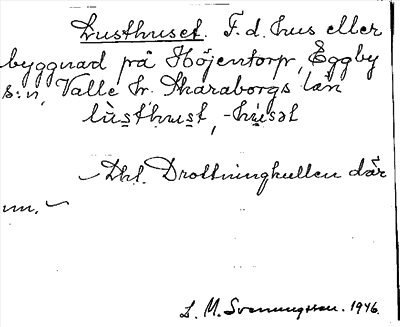 Lusthuset. F.d. hus eller
byggnad på Höjentorp, Eggby
s:n, Valle hr. Skaraborgs län
lùsthust, -hu̇sət
Drottninghullen där
um.
L. M. Svenungsson. 1946.